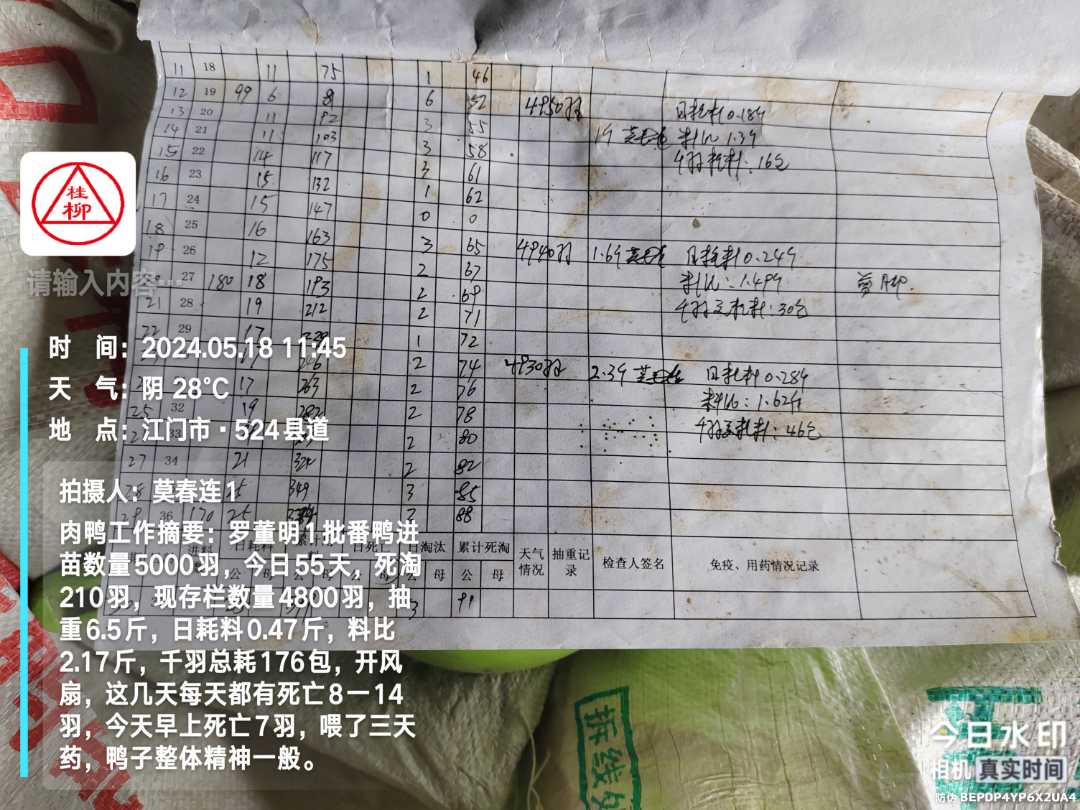 11 18 11 75 1 46
12 19 99 6 81 6 52 4950羽 日耗料0.18斤
13 20 11 92 3 55 1斤 料比1.39
14 21 11 103 3 58 千羽耗料:16包
15 22 14 117 3 61
16 23 15 132 1 62
17 24 15 147 0 0
18 25 16 163 3 65 4940羽 1.6斤 日耗料0.24斤
19 26 12 175 2 67 料比:1.49斤
27 180 18 193 2 69 千羽总耗料:30包
21 28 19 212 2 71
22 29 17 1 72
2 74 4930羽 2.3斤 日耗料0.28斤
17 263 2 76 料比:1.62斤
25 32 19 282 2 78 千羽总耗料:46包
33 2 80
27 34 21 324 2 82
25 349 3 85
28 36 170 25 3 88
进料 日耗料 日死亡 日淘汰 累计死淘 天气情况 抽重记录 检查人签名 免疫、用药情况记录
公 母 公 母 公 母 公 母
3 91
桂柳
请输入内容…
时 间:2024.05.18 11:45
天 气:阴 28℃
地 点:江门市·524县道
拍摄人:莫春连1
肉鸭工作摘要:罗董明1批番鸭进
苗数量5000羽,今日55天,死淘
210羽,现存栏数量4800羽,抽
重6.5斤,日耗料0.47斤,料比
2.17斤,千羽总耗176包,开风
扇,这几天每天都有死亡8一14
羽,今天早上死亡7羽,喂了三天
药,鸭子整体精神一般。
拆线处
今日水印
相机 真实时间
防伪 BEPDP4YP6X2UA4